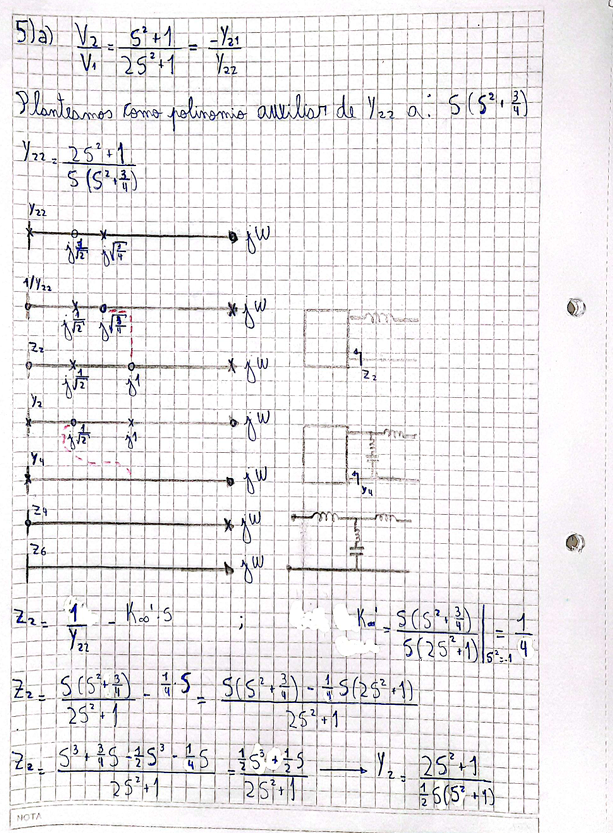 5)a) V₂/V₁ = (S²+1)/(2S²+1) = -Y₂₁/Y₂₂
Planteamos como polinomio auxiliar de Y₂₂ a: S(S²+3/4)
Y₂₂ = (2S²+1)/(S(S²+3/4))
Y₂₂
jW
j1/√2 j√3/4
1/Y₂₂
jW
j1/√2 j√3/4
Z₂
jW
j1/√2 j1
Z₂
Y₂
jW
j1/√2 j1
Y₄
jW
Y₄
Z₄
jW
Z₆
jW
Z₂ = 1/Y₂₂ - K∞'·S ; K∞' = S(S²+3/4)/(S(2S²+1))|S²=-1 = 1/4
Z₂ = S(S²+3/4)/(2S²+1) - 1/4 S = (S(S²+3/4) - 1/4 S(2S²+1))/(2S²+1)
Z₂ = (S³+3/4S-1/2S³-1/4S)/(2S²+1) = (1/2S³+1/2S)/(2S²+1) → Y₂ = (2S²+1)/(1/2S(S²+1))
NOTA